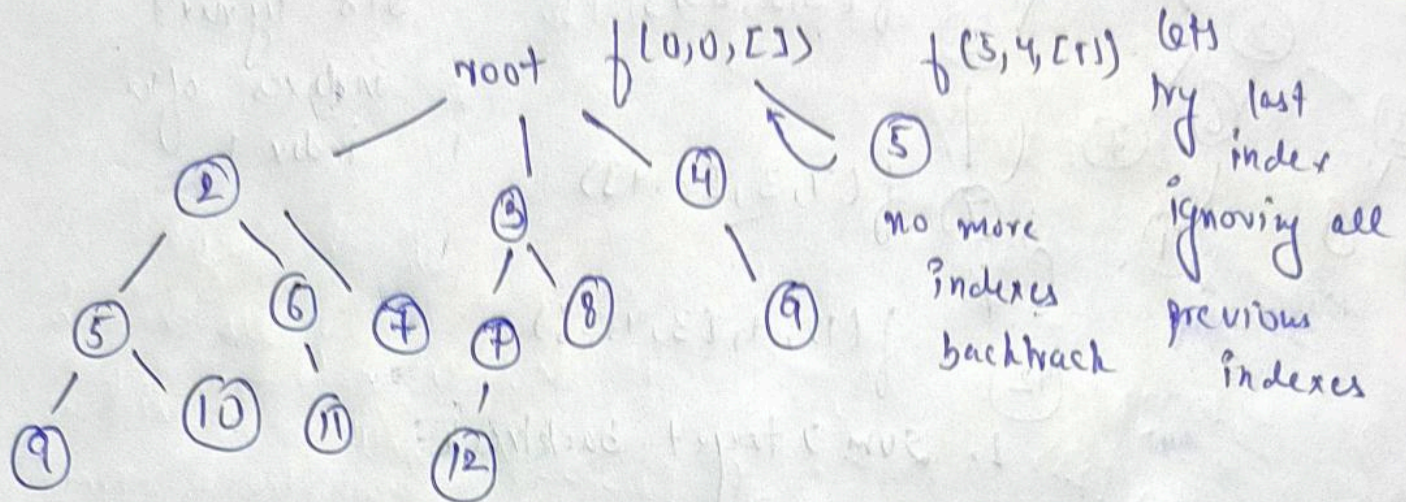 root f(0,0,[]) f(5,4,[5]) lets
try last
index
ignoring all
previous
indexes
2 3 4 5
no more
indexes
backtrack
5 6 7 7 8 9
9 10 11 12